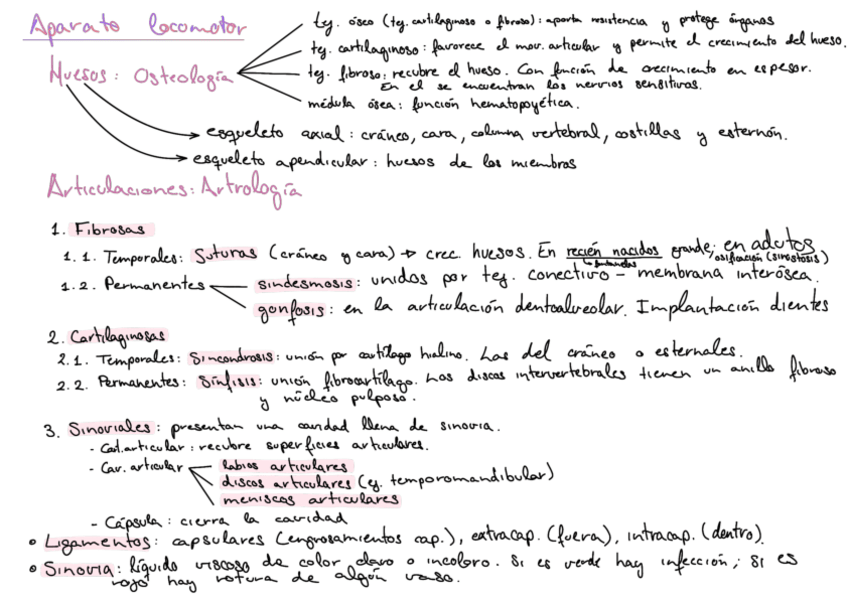 Aparato locomotor
tej. óseo (tej. cartilaginoso o fibroso): aporta resistencia y protege órganos
tej. cartilaginoso: favorece el mov. articular y permite el crecimiento del hueso.
Huesos: Osteología
tej. fibroso: recubre el hueso. Con función de crecimiento en espesor.
En el se encuentran los nervios sensitivas.
médula ósea: función hematopoyética.
esqueleto axial: cráneo, cara, columna vertebral, costillas y esternón.
esqueleto apendicular: huesos de los miembros
Articulaciones: Artrología
1. Fibrosas
1.1. Temporales: Suturas (cráneo y cara) → crec. huesos. En recién nacidos grande; en adutos
osificación (sinostosis)
1.2. Permanentes
sindesmosis: unidos por tej. conectivo - membrana interósea.
gonfosis: en la articulación dentoalveolar. Implantación dientes
2. Cartilaginosas
2.1. Temporales: Sincondrosis: unión por cartílago hialino. Las del cráneo o esternales.
2.2. Permanentes: Sínfisis: unión fibrocartílago. Los discos intervertebrales tienen un anillo fibroso
y núcleo pulposo.
3. Sinoviales: presentan una cavidad llena de sinovia.
- Cart. articular: recubre superficies articulares.
- Cav. articular
labios articulares
discos articulares (ej. temporomandibular)
meniscos articulares
- Cápsula: cierra la cavidad
• Ligamentos: capsulares (engrosamientos cap.), extracap. (fuera), intracap. (dentro).
• Sinovia: líquido viscoso de color claro o incoloro. Si es verde hay infección; si es
rojo hay rotura de algún vaso.